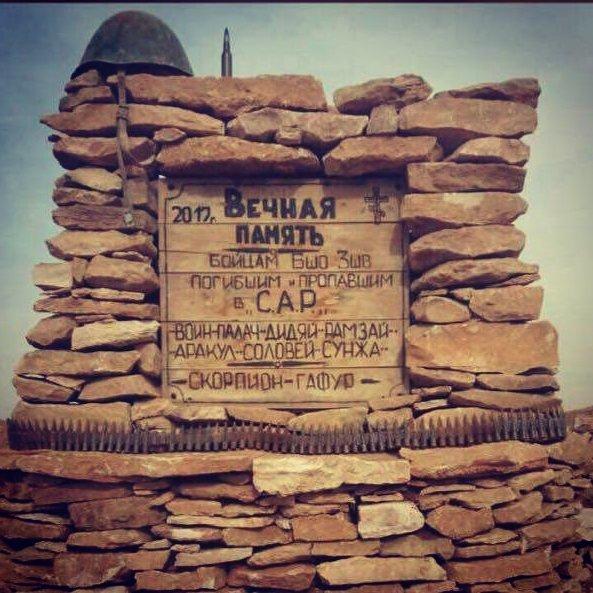 2017г. ВЕЧНАЯ
ПАМЯТЬ
БОЙЦАМ БШО 3ШВ
ПОГИБШИМ И ПРОПАВШИМ
В „С.А.Р."
ВОИН-ПАЛАЧ-ДИДЯЙ-РАМЗАЙ-
АРАКУЛ-СОЛОВЕЙ-СУНЖА-
-СКОРПИОН-ГАФУР-